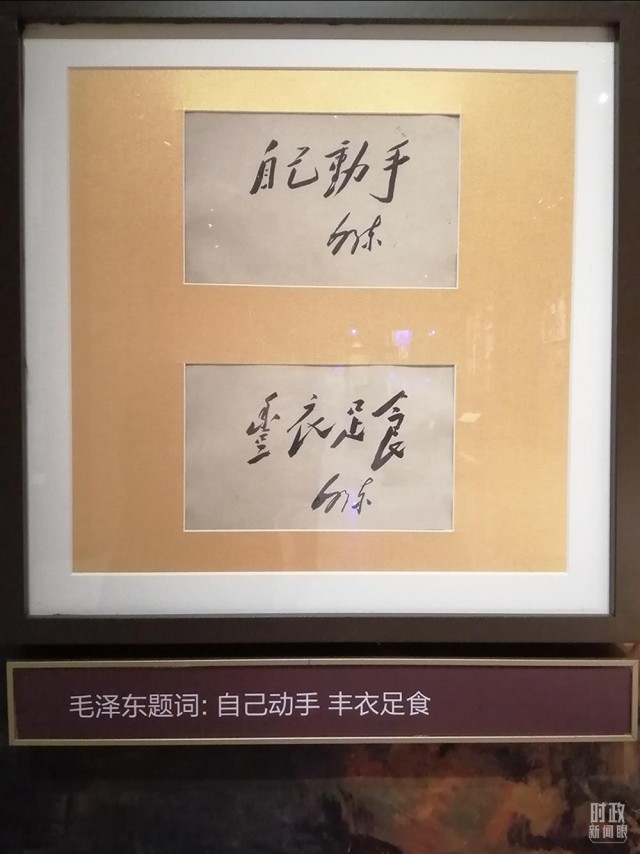 自己動手
泽东
豐衣足食
泽东
毛泽东题词: 自己动手 丰衣足食
时政
新闻眼